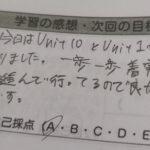 学習の感想・次回の目標
今日はUnit10とUnit1
りました。一歩一歩着実
進んで行ってるので良か
す。
己採点 (A)・B・C・D・E